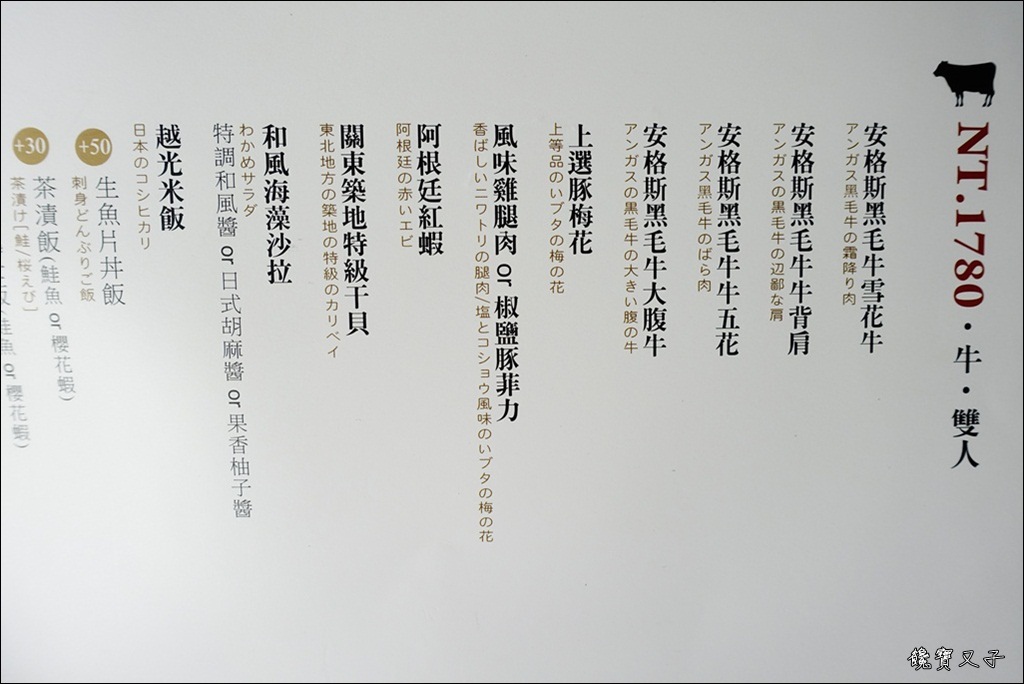 NT.1780・牛・雙人
安格斯黑毛牛雪花牛
アンガス黑毛牛の霜降り肉
安格斯黑毛牛牛背肩
アンガスの黒毛牛の辺鄙な肩
安格斯黑毛牛牛五花
アンガス黑毛牛のばら肉
安格斯黑毛牛大腹牛
アンガスの黒毛牛の大きい腹の牛
上選豚梅花
上等品のいブタの梅の花
風味雞腿肉 or 椒鹽豚菲力
香ばしいニワトリの腿肉/塩とコショウ風味のいブタの梅の花
阿根廷紅蝦
阿根廷の赤いエビ
關東築地特級干貝
東北地方の築地の特級のカリベイ
和風海藻沙拉
わかめサラダ
特調和風醬 or 日式胡麻醬 or 果香柚子醬
越光米飯
日本のコシヒカリ
+50 生魚片丼飯
刺身どんぶりご飯
+30 茶漬飯(鮭魚 or 櫻花蝦)
茶漬け[鮭/桜えび]
(鮭魚 or 櫻花蝦)
饞寶又子